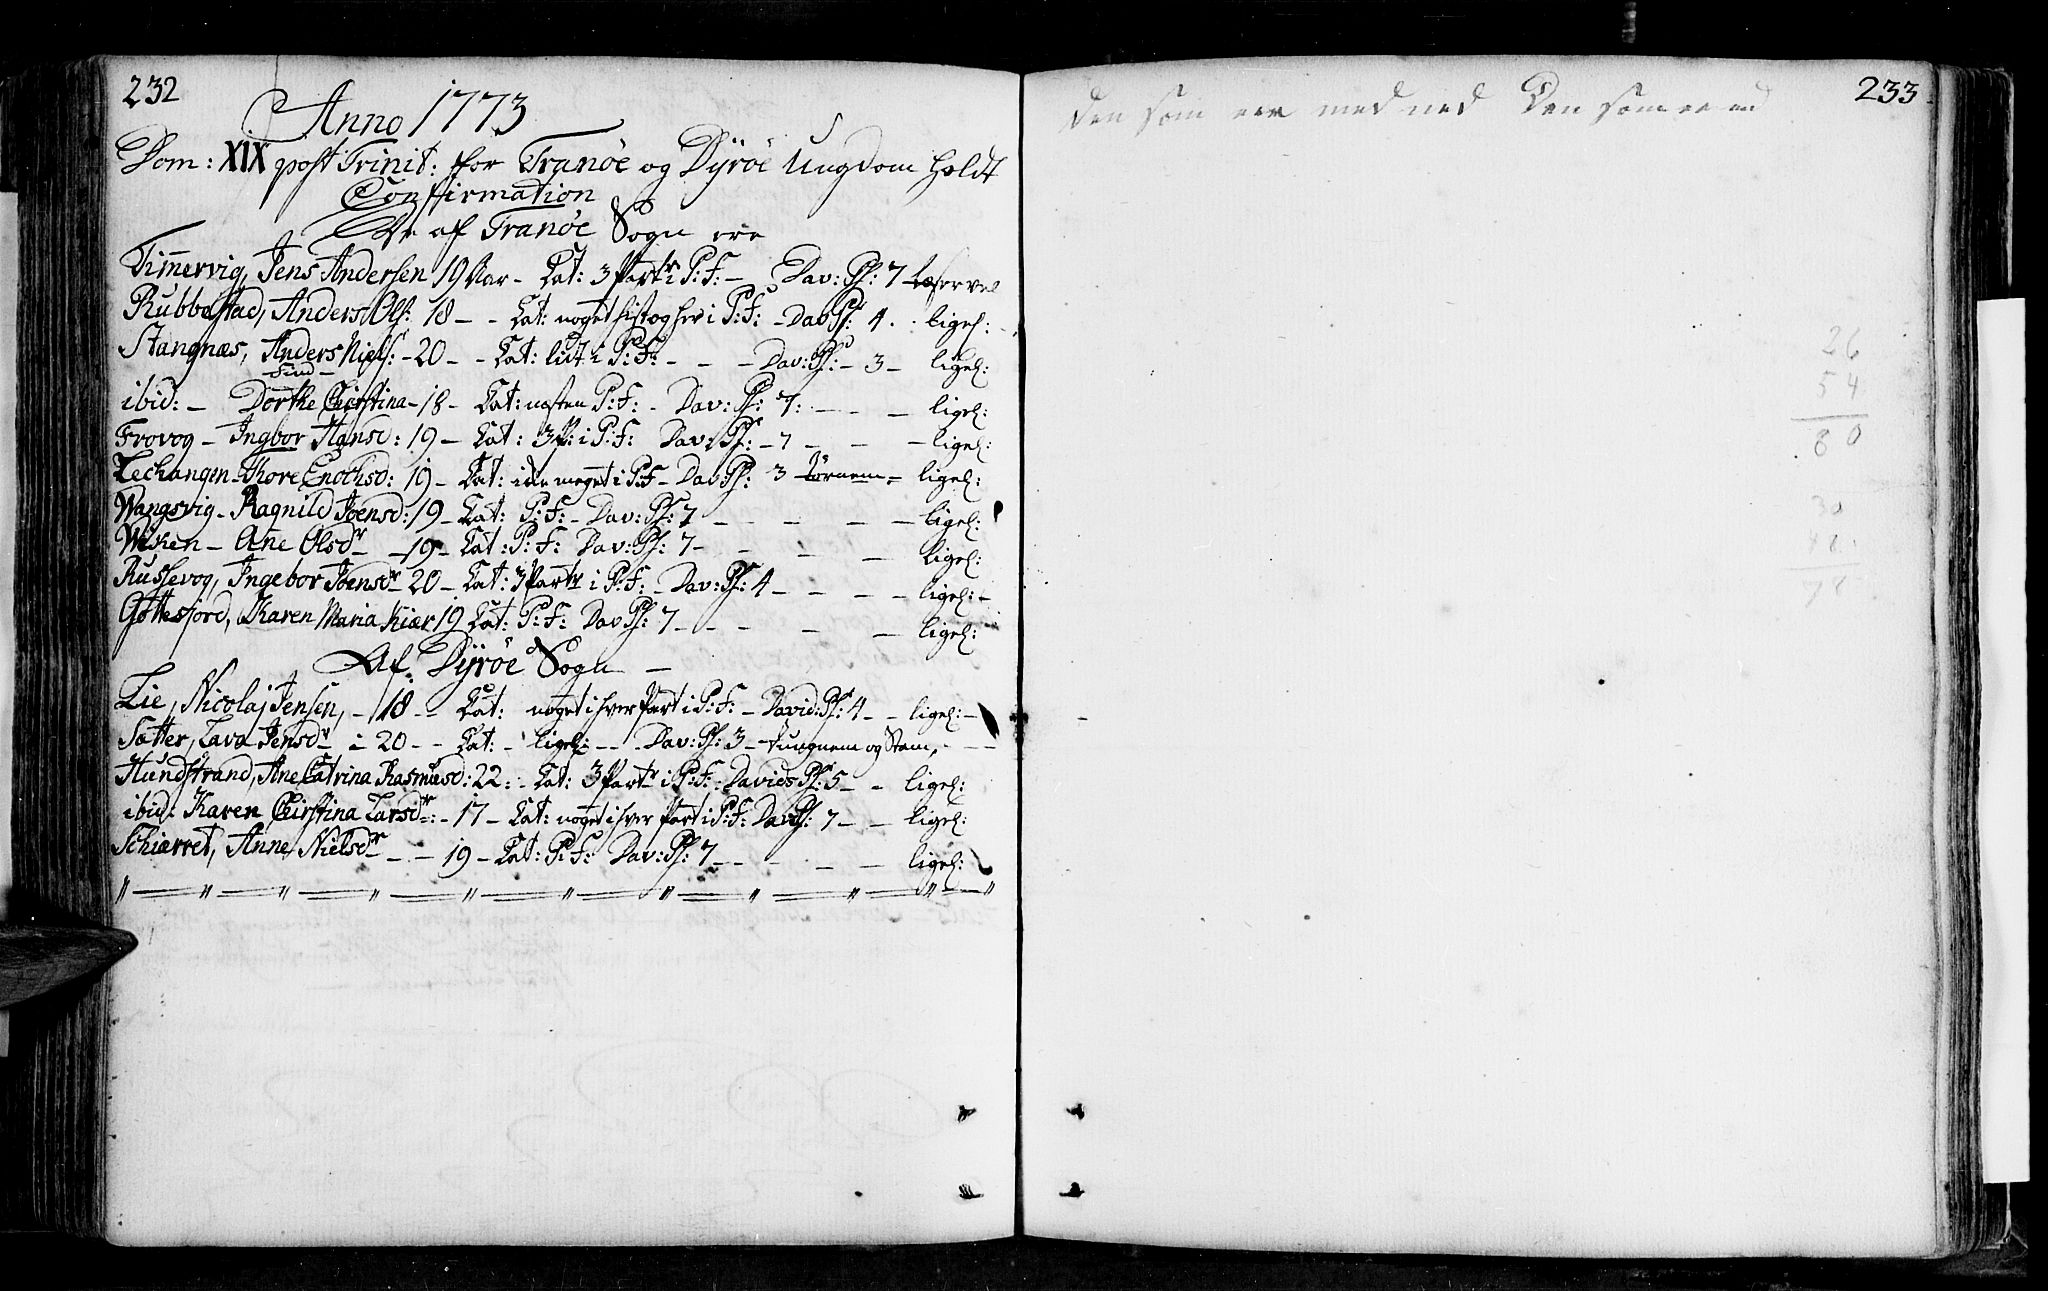 232
Anno 1773
Dom: XIX post Trinit: for Tranöe og Dÿröe Ungdom holdt
Confirmation
De af Tranöe Sogn ere
Timervig, Jens Andersen 19 Aar - Cat: 3 Partr i P: F: - Dav: Ps: 7 Læser vel
Rubbestad, Anders Ols: 18 - - Cat: noget hist og her i P: F: - Dav Ps: 4. ligel:
Stangnæs, Anders Niels: - 20 - - Cat: lidt i P: F: - - - Dav: Ps: - 3 - ligel:
Find
ibid: - Dorthe Chirstina - 18 - Cat: næsten P: F: - Dav: Ps: 7: - - - ligel:
Frovog - Ingbor Hansd: 19 - Cat: 3 P: i P: F: Dav: Ps: - 7 - - - ligel:
Lechangen - Thore Enochsd: 19 - Cat: ikke meget i P: F - Dav: Ps: 3 tornem - ligel:
Wangsvig - Ragnild Joensd: 19 - Cat: P: F: - Dav: Ps: 7 - - - - ligel:
Wiken - Ane Olsdr - 19 - Cat: P: F: Dav: Ps: 7 - - - ligel:
Ruslevog, Ingebor Joensdr 20 - Cat: 3 Partr i P: F: - Dav: Ps: 4 - - - - ligel: -
Gottesfiord, Karen Maria Kiær 19 Cat: P: F: Dav Ps: 7 - - - - - ligel:
Af Dÿröe Sogn -
Lie, Nicolaj Jensen, - 18 - - Cat: noget i hver Part i P: F: - David: Ps: 4 - - ligel: -
Sætter, Lava Jensdr - 20 - - Cat: - ligel: - - - Dav: Ps: 3 - tungnem og Stam, - - -
Hundstrand, Ane Catrina Rasmusd: 22: - Cat: 3 Partr i P: F: - Davids Ps: 5 - - ligel:
ibid: Karen Chirstina Larsdr: - 17 - Cat: noget i hver Part i P: F: David Ps: 7 - - ligel:
Schiærret, Anne Nielsdr - - - 19 - Cat: P: F: Dav: Ps: 7 - - - - - ligel:
233
Den som med ned Den som
26
54
80
30
48
78